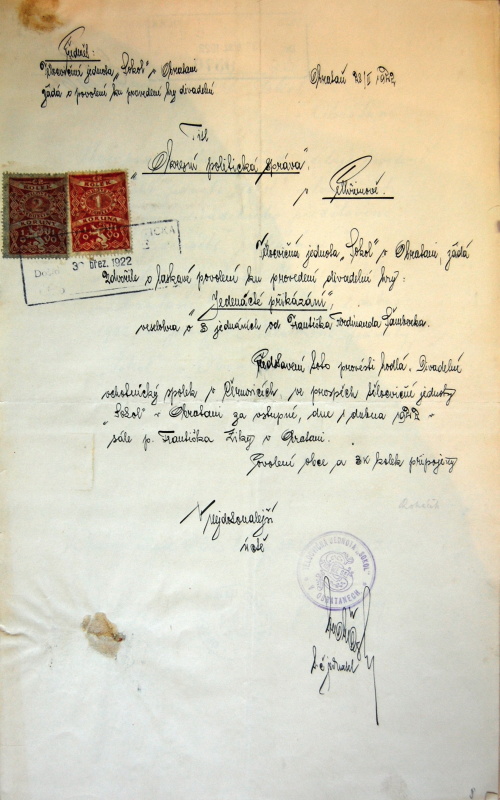 Předmět:
Tělocvičná jednota „Sokol" v Obratani
žádá o povolení ku provedení hry divadelní
Obrataň 28/II 1922
Tit.
„Okresní politická správa".
v Pelhřimově.
KOLEK
2
KORUNY
KOLEK
1
KORUNA
30 břez. 1922
Tělocvičná jednota „Sokol" v Obratani, žádá
zdvořile o laskavé povolení ku provedení divadelní hry:
„Jedenácté přikázání",
veselohra o 3 jednáních od Františka Ferdinanda Šamberka.
Představení toto provésti hodlá. Divadelní
ochotnický spolek v Černovicích, ve prospěch tělocvičné jednoty
„Sokol" v Obratani za vstupné, dne 1 dubna 1922 v
sále p. Františka Ziky v Obratani.
Povolení obce a 3K kolek připojeny
V nejdokonalejší
úctě
TĚLOCVIČNÁ JEDNOTA „SOKOL"
V OBRATANI
t. č. jednatel
8